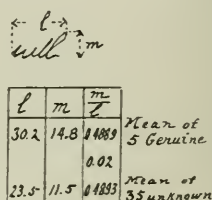 l
well m
l m m/l
30.2 14.8 0.4889 Mean of 5 Genuine
0.02
23.5 11.5 0.4893 Mean of 35 unknown